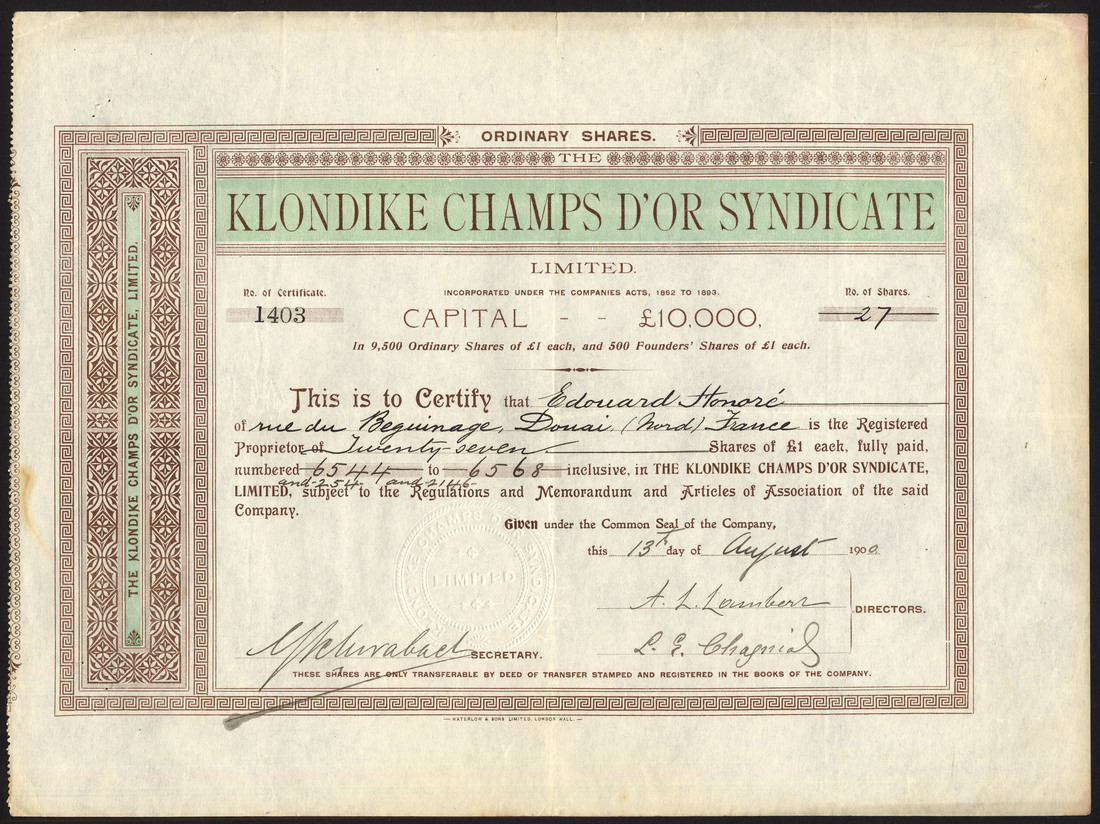 ORDINARY SHARES.
THE
KLONDIKE CHAMPS D'OR SYNDICATE
LIMITED.
No. of Certificate.
1403
INCORPORATED UNDER THE COMPANIES ACTS, 1862 TO 1893.
No. of Shares.
27
CAPITAL - - £10,000,
In 9,500 Ordinary Shares of £1 each, and 500 Founders' Shares of £1 each.
This is to Certify that Edouard Honoré
of rue du Beguinage, Douai (Nord) France is the Registered
Proprietor of Twenty-seven Shares of £1 each, fully paid,
numbered 6544 to 6568 inclusive, in THE KLONDIKE CHAMPS D'OR SYNDICATE,
and 254 and 2146
LIMITED, subject to the Regulations and Memorandum and Articles of Association of the said
Company.
Given under the Common Seal of the Company,
this 13th day of August 1900
A. L. Lambert
DIRECTORS.
L. E.
SECRETARY.
THESE SHARES ARE ONLY TRANSFERABLE BY DEED OF TRANSFER STAMPED AND REGISTERED IN THE BOOKS OF THE COMPANY.
— WATERLOW & SONS LIMITED, LONDON WALL. —
THE KLONDIKE CHAMPS D'OR SYNDICATE, LIMITED.
LIMITED